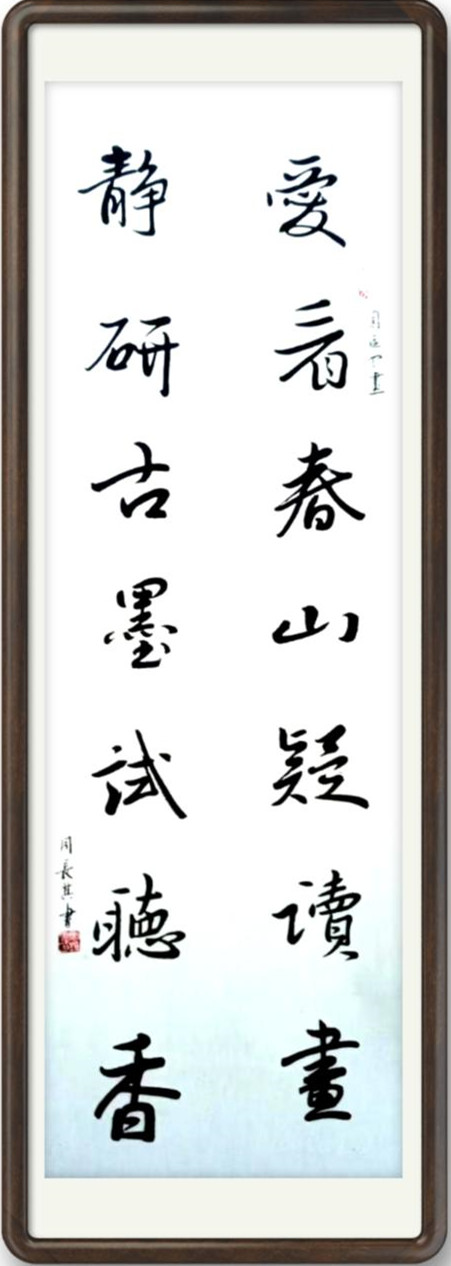 愛看春山疑讀畫
静研古墨試聽香
周長其書